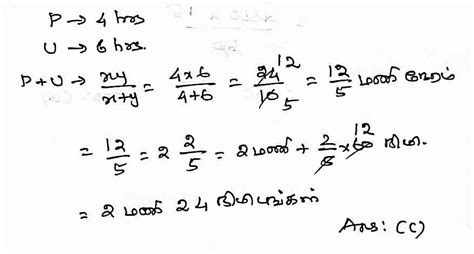 P → 4 hrs
U → 6 hrs.
P+U → xy/x+y = 4x6/4+6 = 24 12/10 5 = 12/5 மணி நேரம்
= 12/5 = 2 2/5 = 2 மணி + 2/5 x 60 12 நிமி.
= 2 மணி 24 நிமிடங்கள்
Ans: (C)